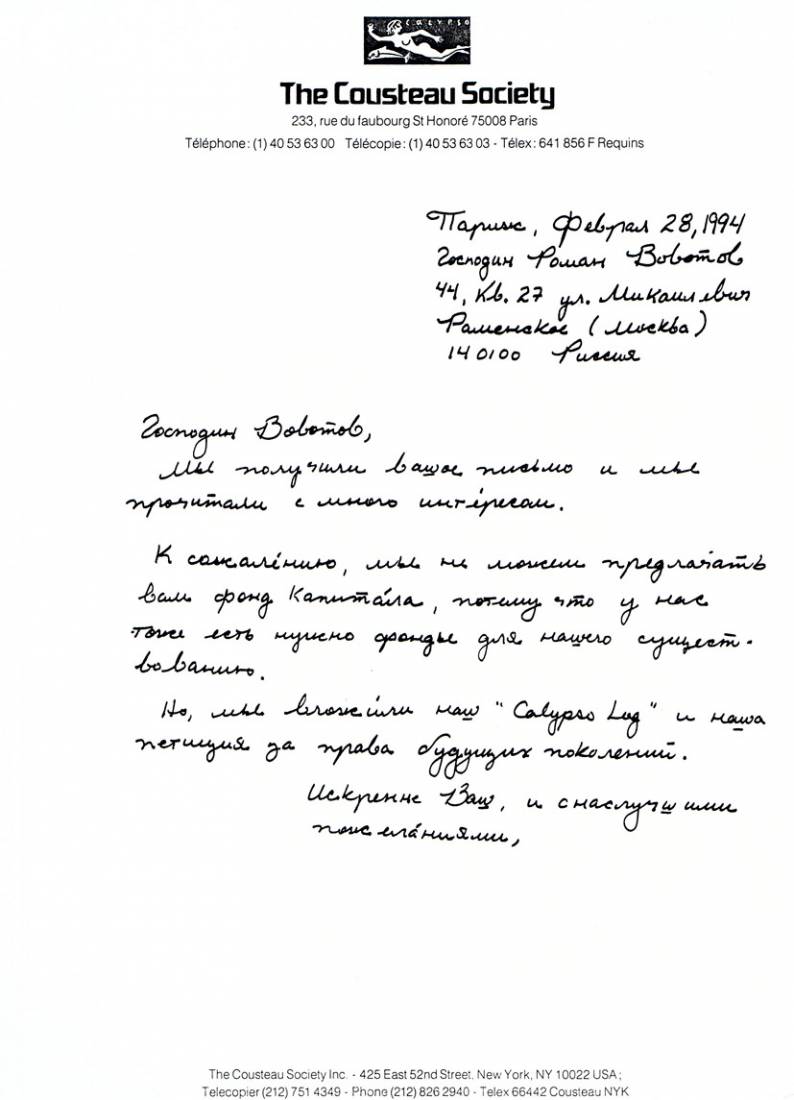 CALYPSO
The Cousteau Society
233, rue du faubourg St Honoré 75008 Paris
Téléphone: (1) 40 53 63 00 Télécopie: (1) 40 53 63 03 - Télex: 641 856 F Requins
Париж, Феврал 28, 1994
Господин Роман Вовотов
44, Кв. 27 ул. Микаилевич
Раменское (Москва)
140100 Руссия
Господин Вовотов,
Мы получили вашое письмо и мы
прочитали с много интéресом.
К сожалéнию, мы не можем предлагáть
вам фонд Капитáла, потому что у нас
тоже есть нужно фонды для нашего сущест-
вованию.
Но, мы вложи́ли наш "Calypso Log" и наша
петиция за права будущих поколений.
Искренне Ваш, и снаслучшими
пожелáниями,
The Cousteau Society Inc. - 425 East 52nd Street, New York, NY 10022 USA;
Telecopier (212) 751 4349 - Phone (212) 826 2940 - Telex 66442 Cousteau NYK